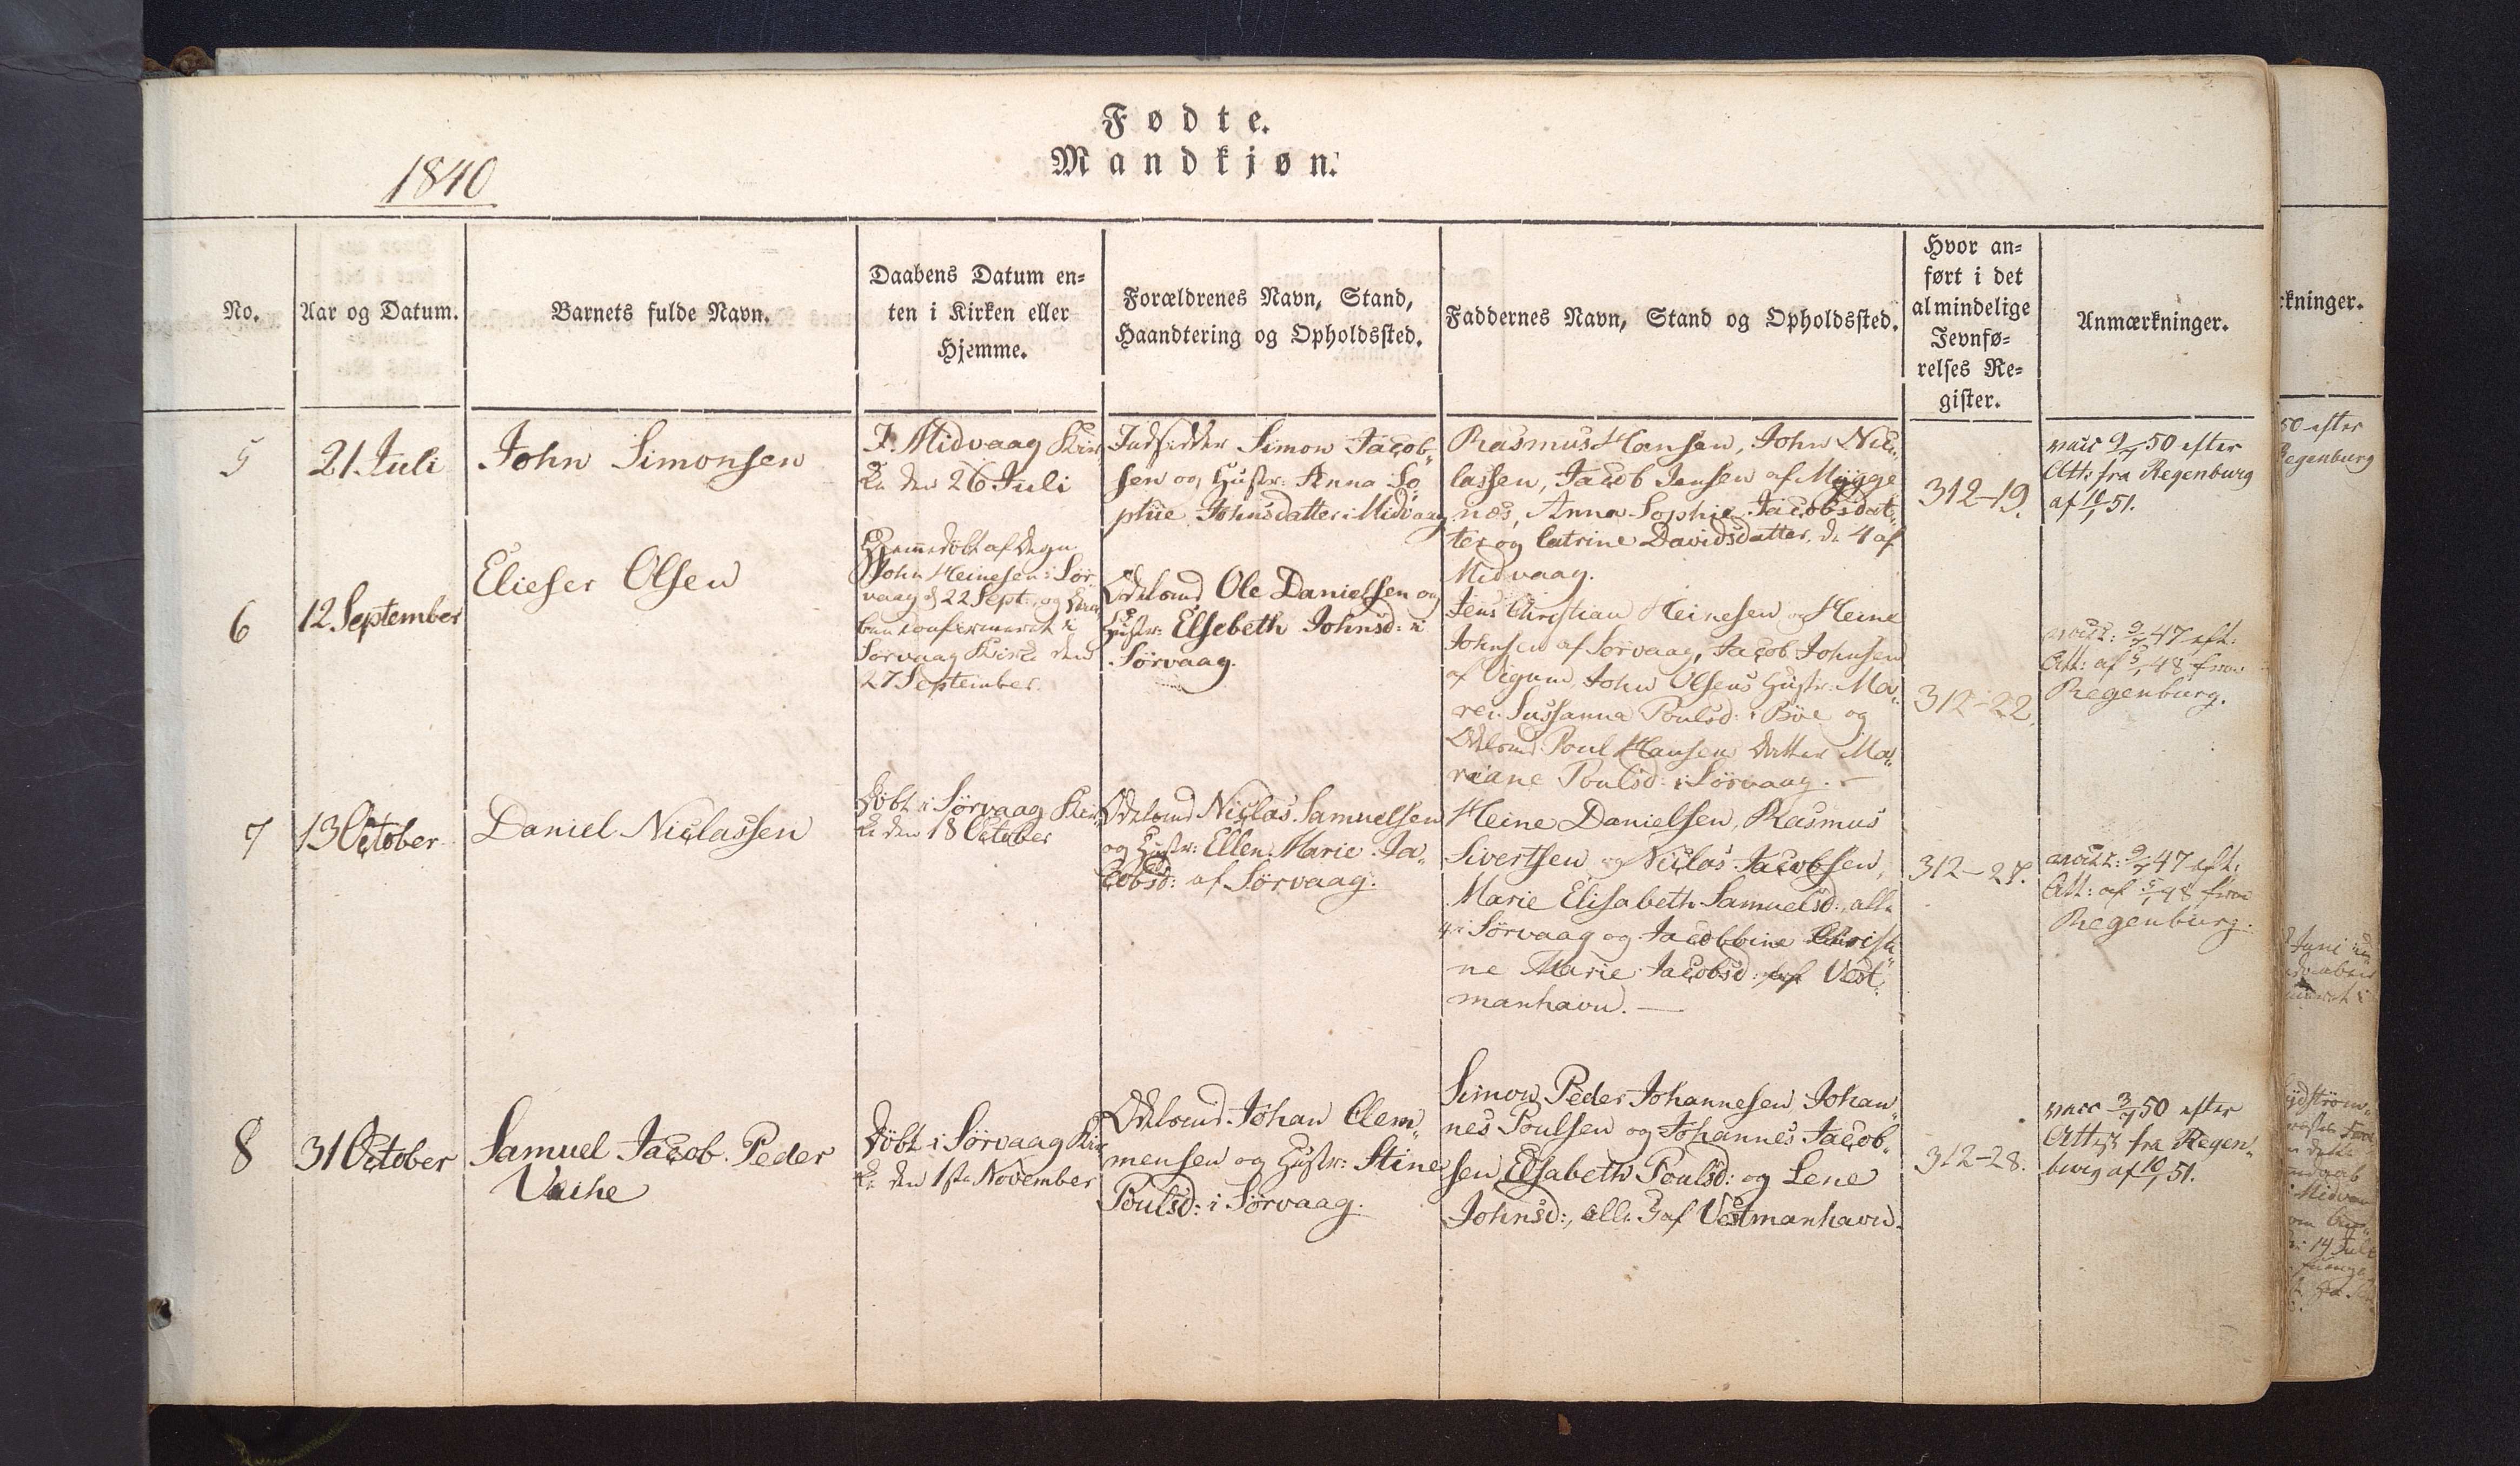 Fødte.
Mandkjøn.
1840
No.
Aar og Datum.
Barnets fulde Navn.
Daabens Datum en=
ten i Kirken eller
Hjemme.
Forældrenes Navn, Stand,
Haandtering og Opholdssted.
Faddernes Navn, Stand og Opholdssted.
Hvor an=
ført i det
almindelige
Jevnfø=
relses Re=
gister.
Anmærkninger.
5
21 Juli
John Simonsen
I Midvaag Kir
ke den 26 Juli
Indsidder Simon Jacob„
sen og Hustr: Anna So
phie Johnsdatter i Midvaag
Rasmus Hansen, John Nic„
lassen, Jacob Jensen af Mygge
næs, Anna Sophie Jacobsdat„
ter og Catrine Davidsdatter, de 4 af
Midvaag.
312–19.
vacc 9/7 50 efter
Att: fra Regenburg
af 10/1 51.
6
12 September
Elieser Olsen
Hjemmedöbt af Degn
John Heinesen i Sör„
vaag d 22 Sept:, og Daa
ben confirmeret i
Sörvaag Kirke den
27 September.
Odelsmd Ole Danielsen og
Hustr: Elsebeth Johnsd: i
Sörvaag.
Jens Christian Heinesen og Heine
Johnsen af Sörvaag, Jacob Johnsen
af Vigum, John Olsens Hustr: Ma„
ren Sussanna Poulsd: i Böe og
Odelsmd Poul Hansens Datter Ma„
riane Poulsd: i Sörvaag.
312–22.
vacc: 9/7 47 eft:
Att: af 5/1 48 fra
Regenburg.
7
13 October
Daniel Niclassen
Döbt i Sörvaag Kir
ke den 18 October
Odelsmd Niclas Samuelsen
og Hustr: Ellen Marie Ja„
cobsd: af Sörvaag.
Heine Danielsen, Rasmus
Sivertsen og Niclas Jacobsen,
Marie Elisabeth Samuelsd:, alle
4 i Sörvaag og Jacobbine Christi„
ne Marie Jacobsd: af Vest„
manhavn.
312–27.
vacc: 9/7 47 eft:
Att: af 5/1 48 fra
Regenburg.
8
31 October
Samuel Jacob Peder
Vache
Döbt i Sörvaag Kir
ke den 1ste November
Odelsmd Johan Clem„
mensen og Hustr: Stine
Poulsd: i Sörvaag.
Simon Peder Johannesen, Johan„
nes Poulsen og Johannes Jacob„
sen, Elsabeth Poulsd: og Lene
Johnsd:, alle 5 af Vestmanhavn.
312–28.
vacc 3/7 50 efter
Attest fra Regen„
burg af 10/1 51.
rkninger.
50 efter
Regenburg